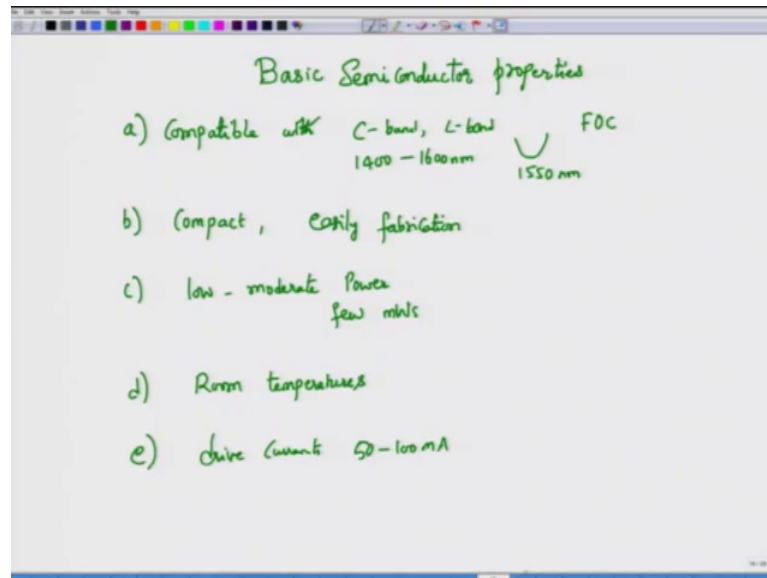 Basic Semiconductor properties
a) Compatible with C-band, L-band FOC
1400 - 1600nm
1550 nm
b) Compact, easily fabrication
c) low - moderate Power
few mWs
d) Room temperatures
e) drive currents 50-100mA